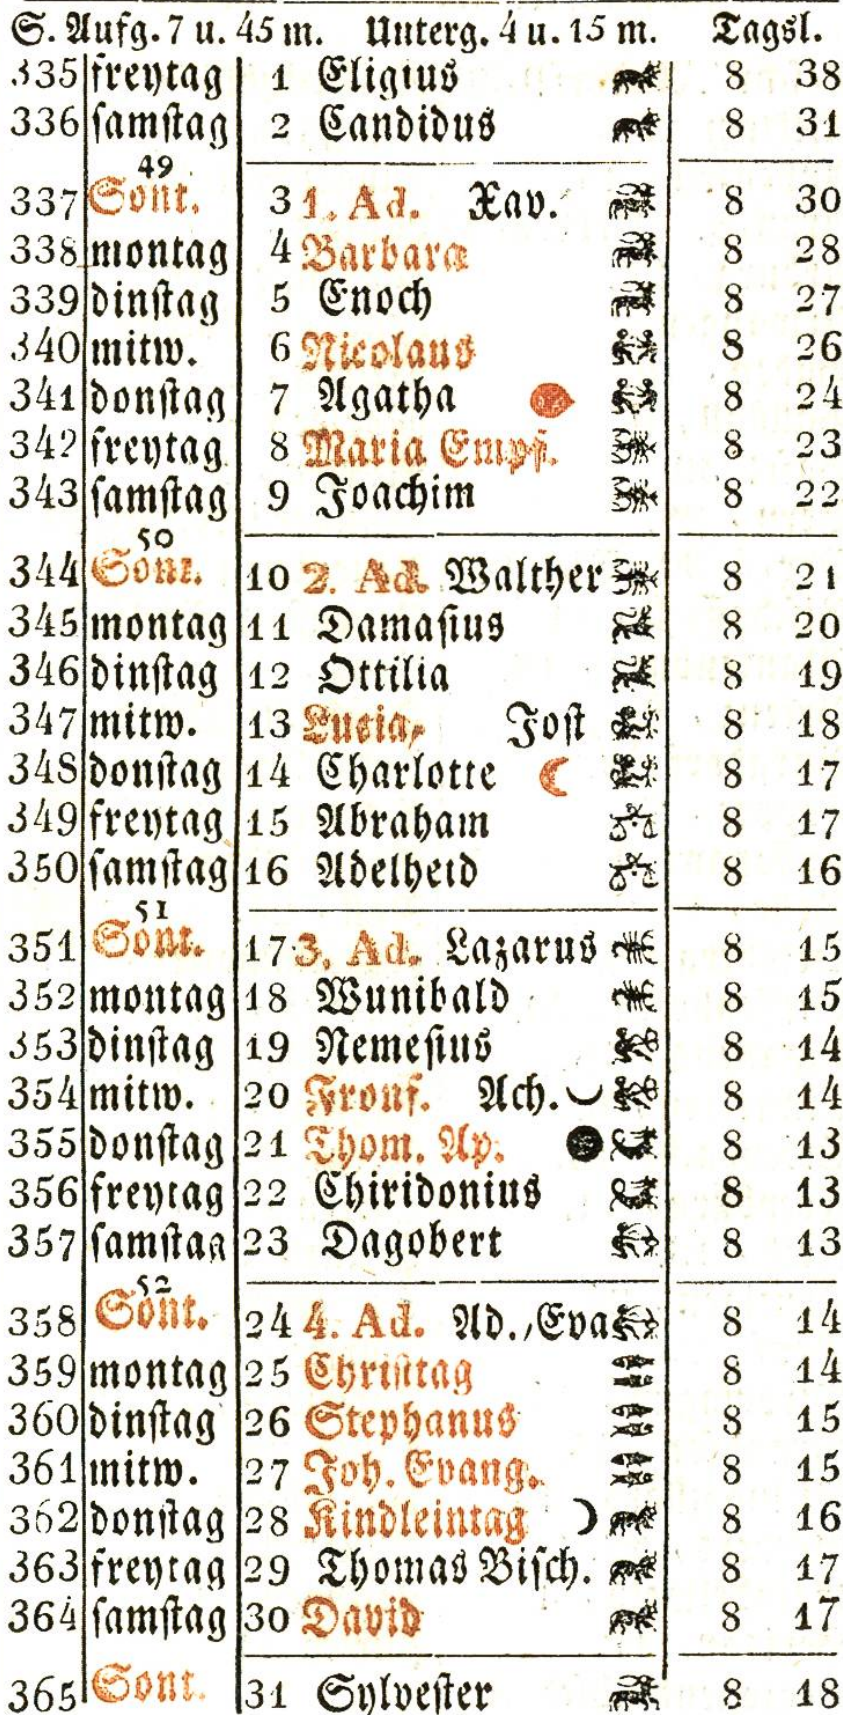 S. Aufg. 7 u. 45 m. Unterg. 4 u. 15 m. Tagsl.
335 freytag 1 Eligius 8 38
336 samstag 2 Candidus 8 31
49
337 Sont. 3 1. Ad. Xav. 8 30
338 montag 4 Barbara 8 28
339 dinstag 5 Enoch 8 27
340 mitw. 6 Nicolaus 8 26
341 donstag 7 Agatha 8 24
342 freytag 8 Maria Empf. 8 23
343 samstag 9 Joachim 8 22
50
344 Sont. 10 2. Ad. Walther 8 21
345 montag 11 Damasius 8 20
346 dinstag 12 Ottilia 8 19
347 mitw. 13 Lucia, Jost 8 18
348 donstag 14 Charlotte 8 17
349 freytag 15 Abraham 8 17
350 samstag 16 Adelheid 8 16
51
351 Sont. 17 3. Ad. Lazarus 8 15
352 montag 18 Wunibald 8 15
353 dinstag 19 Nemesius 8 14
354 mitw. 20 Fronf. Ach. 8 14
355 donstag 21 Thom. Ap. 8 13
356 freytag 22 Chiridonius 8 13
357 samstag 23 Dagobert 8 13
52
358 Sont. 24 4. Ad. Ad., Eva 8 14
359 montag 25 Christtag 8 14
360 dinstag 26 Stephanus 8 15
361 mitw. 27 Joh. Evang. 8 15
362 donstag 28 Kindleintag 8 16
363 freytag 29 Thomas Bisch. 8 17
364 samstag 30 David 8 17
365 Sont. 31 Sylvester 8 18